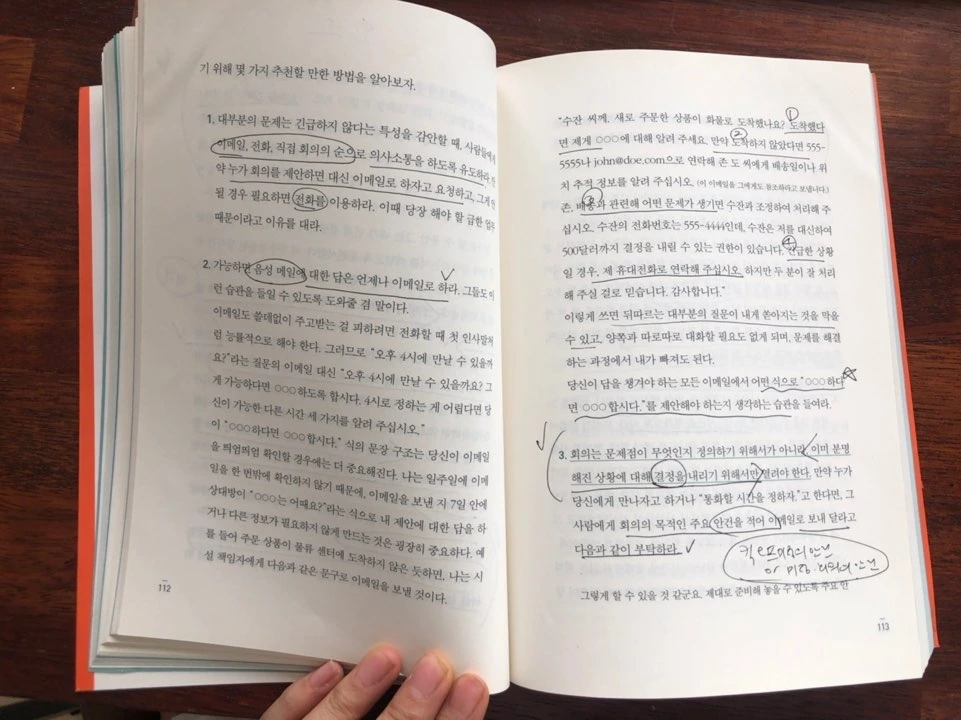 기 위해 몇 가지 추천할 만한 방법을 알아보자.
1. 대부분의 문제는 긴급하지 않다는 특성을 감안할 때, 사람들에게
이메일, 전화, 직접 회의의 순으로 의사소통을 하도록 유도하라. 만
약 누가 회의를 제안하면 대신 이메일로 하자고 요청하고, 그게 안
될 경우 필요하면 전화를 이용하라. 이때 당장 해야 할 급한 업무
때문이라고 이유를 대라.
2. 가능하면 음성 메일에 대한 답은 언제나 이메일로 하라. 그들도 이
런 습관을 들일 수 있도록 도와줄 겸 말이다.
이메일도 쓸데없이 주고받는 걸 피하려면 전화할 때 첫 인사말처
럼 능률적으로 해야 한다. 그러므로 "오후 4시에 만날 수 있을까
요?"라는 질문의 이메일 대신 "오후 4시에 만날 수 있을까요? 그
게 가능하다면 ○○○하도록 합시다. 4시로 정하는 게 어렵다면 당
신이 가능한 다른 시간 세 가지를 알려 주십시오."
이 "○○○하다면 ○○○합시다." 식의 문장 구조는 당신이 이메일
을 띄엄띄엄 확인할 경우에는 더 중요해진다. 나는 일주일에 이메
일을 한 번밖에 확인하지 않기 때문에, 이메일을 보낸 지 7일 안에
상대방이 "○○○는 어때요?"라는 식으로 내 제안에 대한 답을 하
거나 다른 정보가 필요하지 않게 만드는 것은 굉장히 중요하다. 예
를 들어 주문 상품이 물류 센터에 도착하지 않은 듯하면, 나는 시
설 책임자에게 다음과 같은 문구로 이메일을 보낼 것이다.
112
"수잔 씨께, 새로 주문한 상품이 화물로 도착했나요? 도착했다
면 제게 ○○○에 대해 알려 주세요. 만약 도착하지 않았다면 555-
5555나 john@doe.com으로 연락해 존 도 씨에게 배송일이나 위
치 추적 정보를 알려 주십시오. (이 이메일을 그에게도 참조하라고 보냅니다.)
존, 배송과 관련해 어떤 문제가 생기면 수잔과 조정하여 처리해 주
십시오. 수잔의 전화번호는 555-4444인데, 수잔은 저를 대신하여
500달러까지 결정을 내릴 수 있는 권한이 있습니다. 긴급한 상황
일 경우, 제 휴대전화로 연락해 주십시오. 하지만 두 분이 잘 처리
해 주실 걸로 믿습니다. 감사합니다."
이렇게 쓰면 뒤따르는 대부분의 질문이 내게 쏟아지는 것을 막을
수 있고, 양쪽과 따로따로 대화할 필요도 없게 되며, 문제를 해결
하는 과정에서 내가 빠져도 된다.
당신이 답을 챙겨야 하는 모든 이메일에서 어떤 식으로 "○○○하다
면 ○○○합시다."를 제안해야 하는지 생각하는 습관을 들여라.
3. 회의는 문제점이 무엇인지 정의하기 위해서가 아니라, 이미 분명
해진 상황에 대해 결정을 내리기 위해서만 열려야 한다. 만약 누가
당신에게 만나자고 하거나 "통화할 시간을 정하자."고 한다면, 그
사람에게 회의의 목적인 주요 안건을 적어 이메일로 보내 달라고
다음과 같이 부탁하라.
or
그렇게 할 수 있을 것 같군요. 제대로 준비해 놓을 수 있도록 주요 안
113